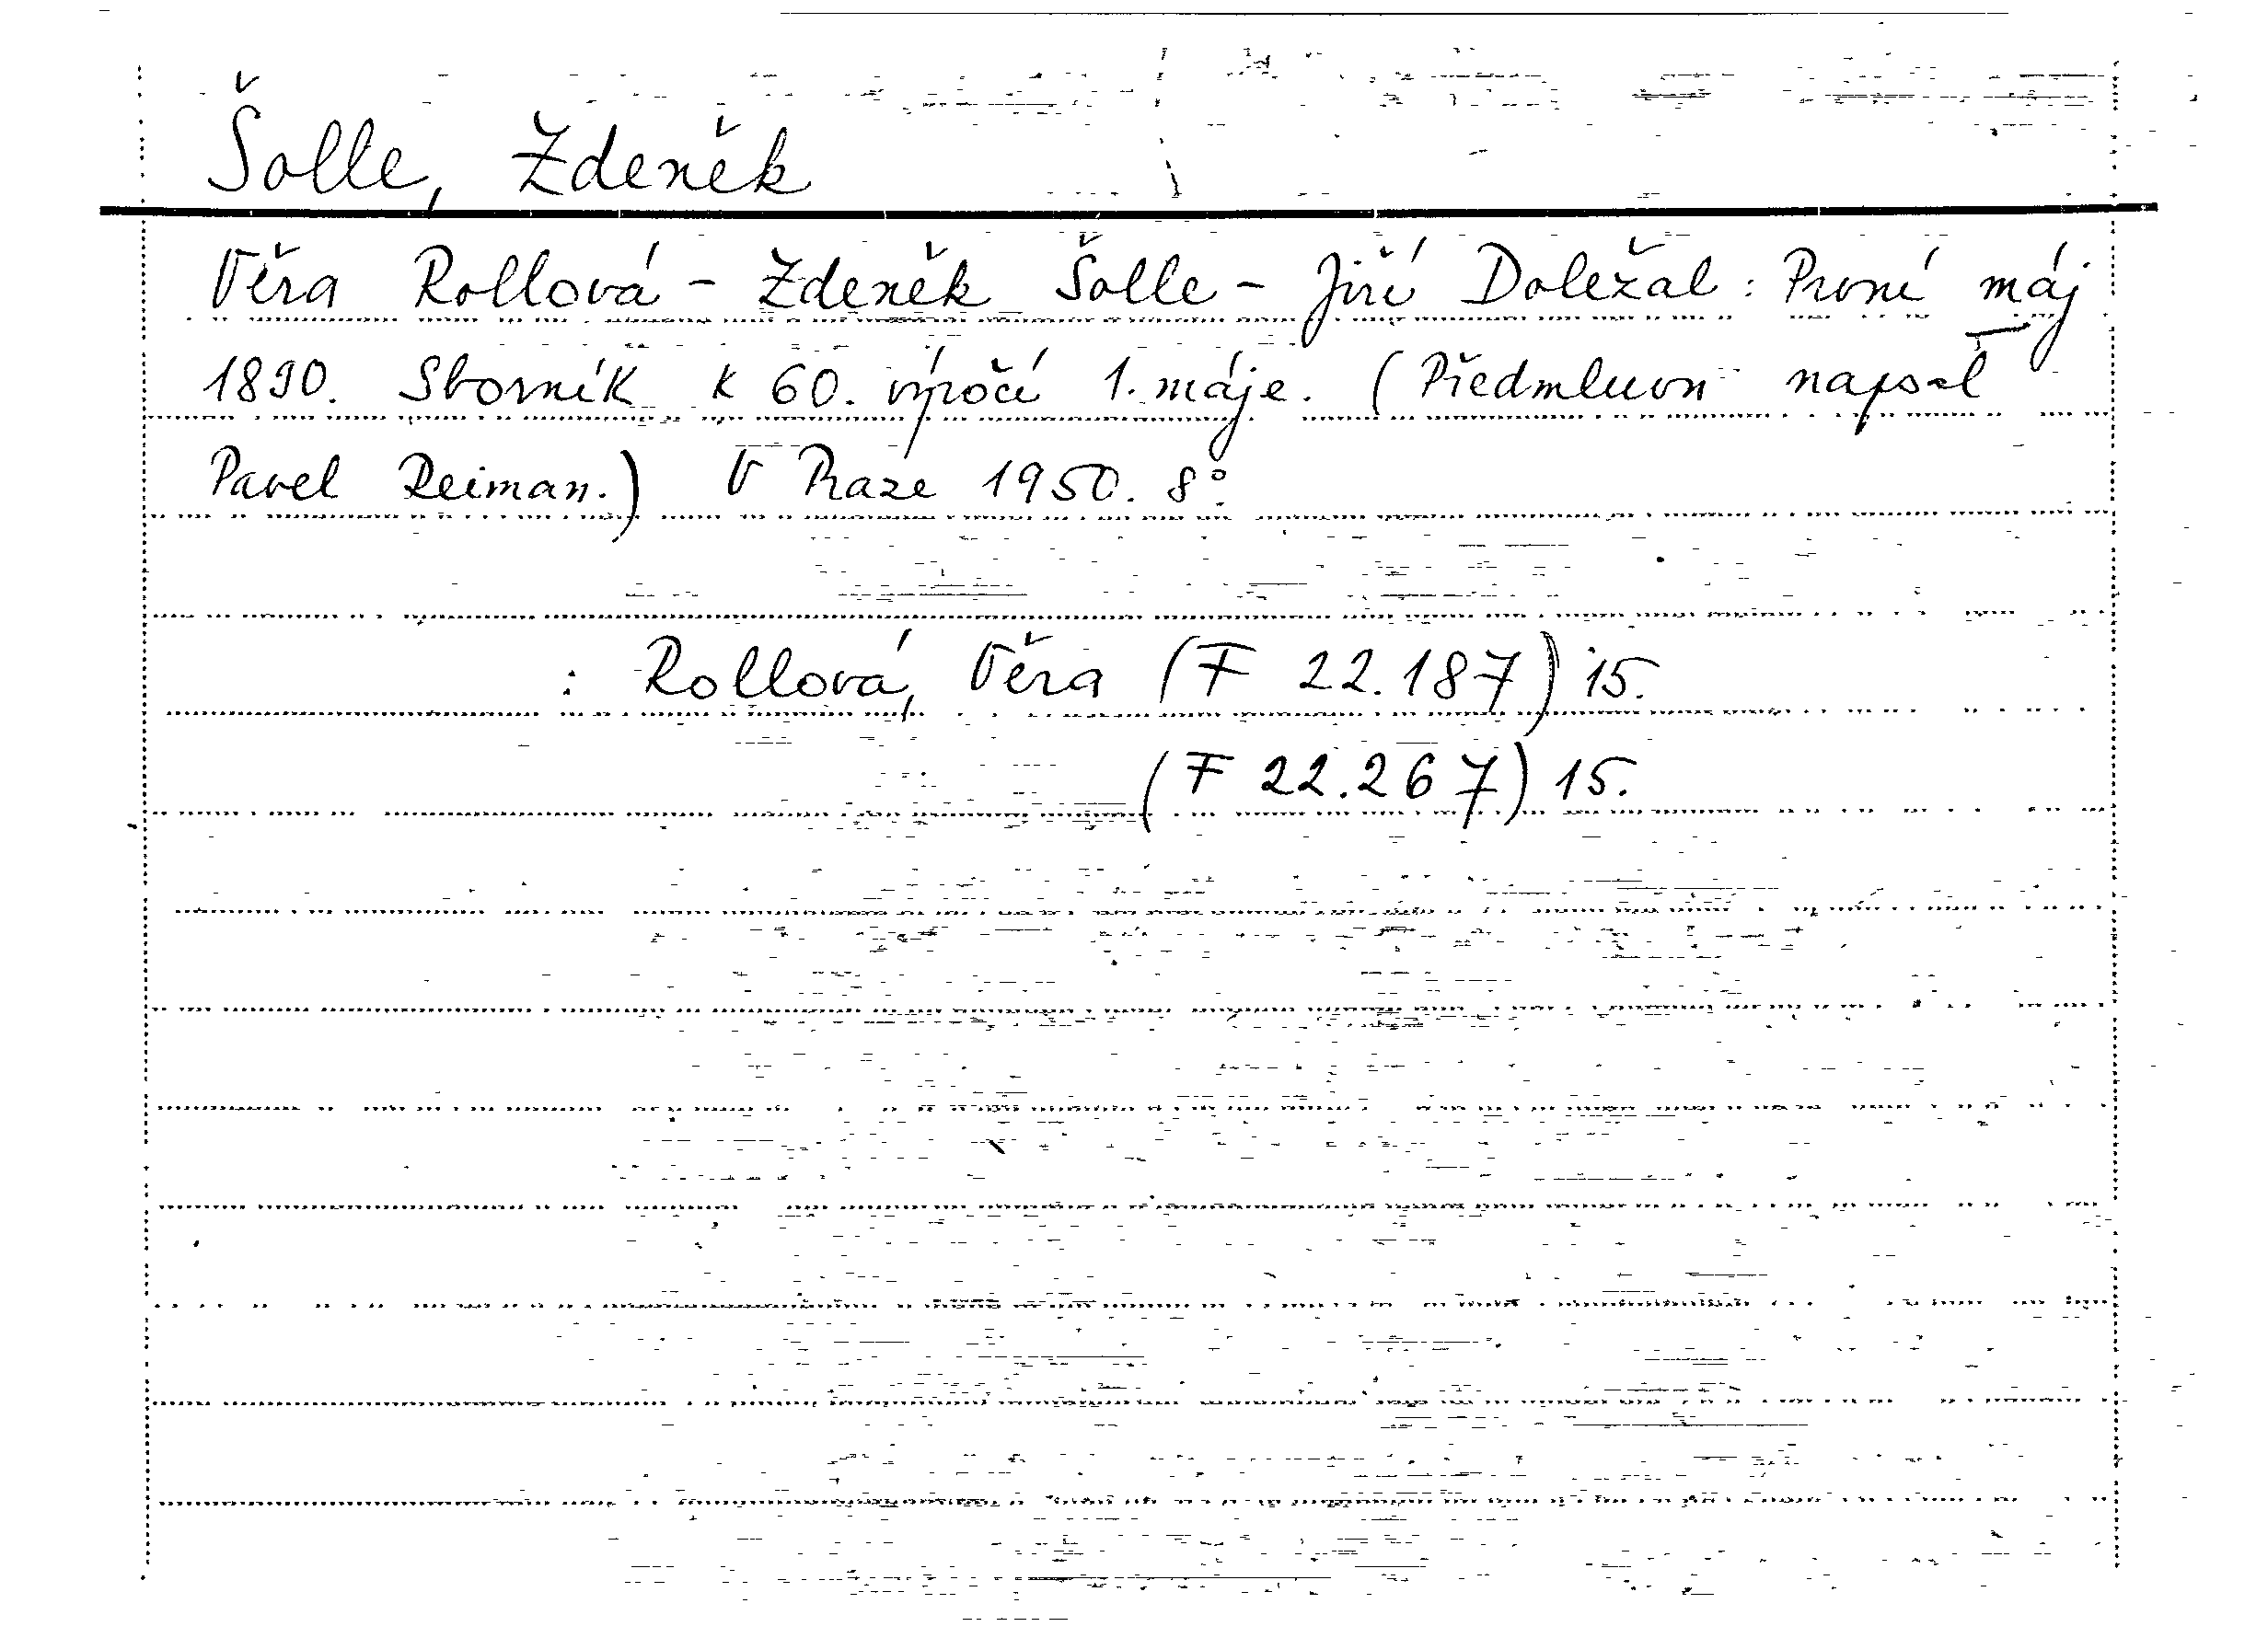 Šolle, Zdeněk
Věra Rollová - Zdeněk Šolle - Jiří Doležal: První máj
1890. Sborník k 60. výročí 1. máje. (Předmluvu napsal
Pavel Reiman.) V Praze 1950. 8°.
: Rollová, Věra (F 22.187) 15.
(F 22.267) 15.